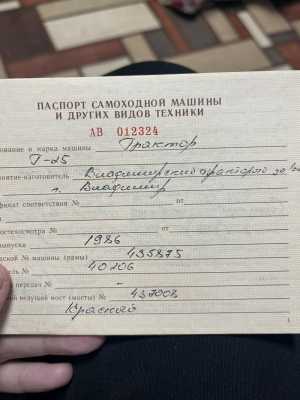 ПАСПОРТ САМОХОДНОЙ МАШИНЫ
И ДРУГИХ ВИДОВ ТЕХНИКИ
АВ 012324
ование и марка машины Трактор
Т-25
иятие-изготовитель Владимирский тракторный
г. Владимир
фикат соответствия № от
остехосмотра № от
выпуска 1986
ской № машины (рамы) 435875
ель № 40206
передач № -
й ведущий мост (мосты) № 437008
Красный